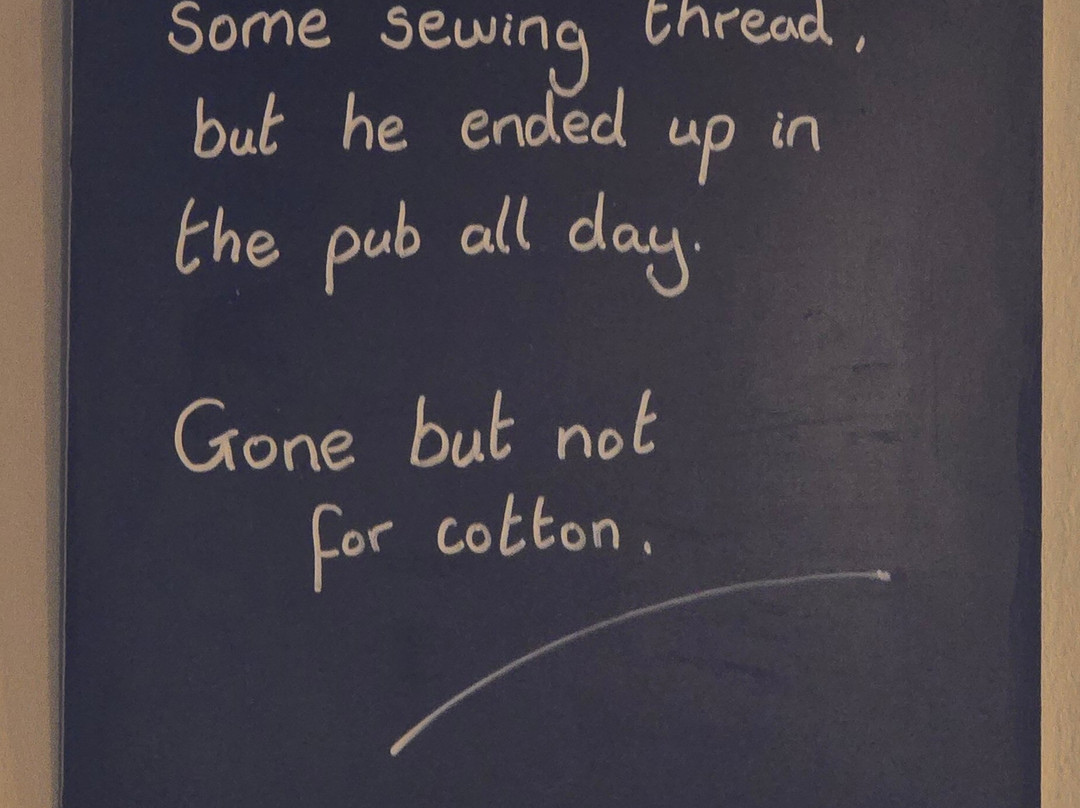 Some sewing thread,
but he ended up in
the pub all day.
Gone but not
for cotton.